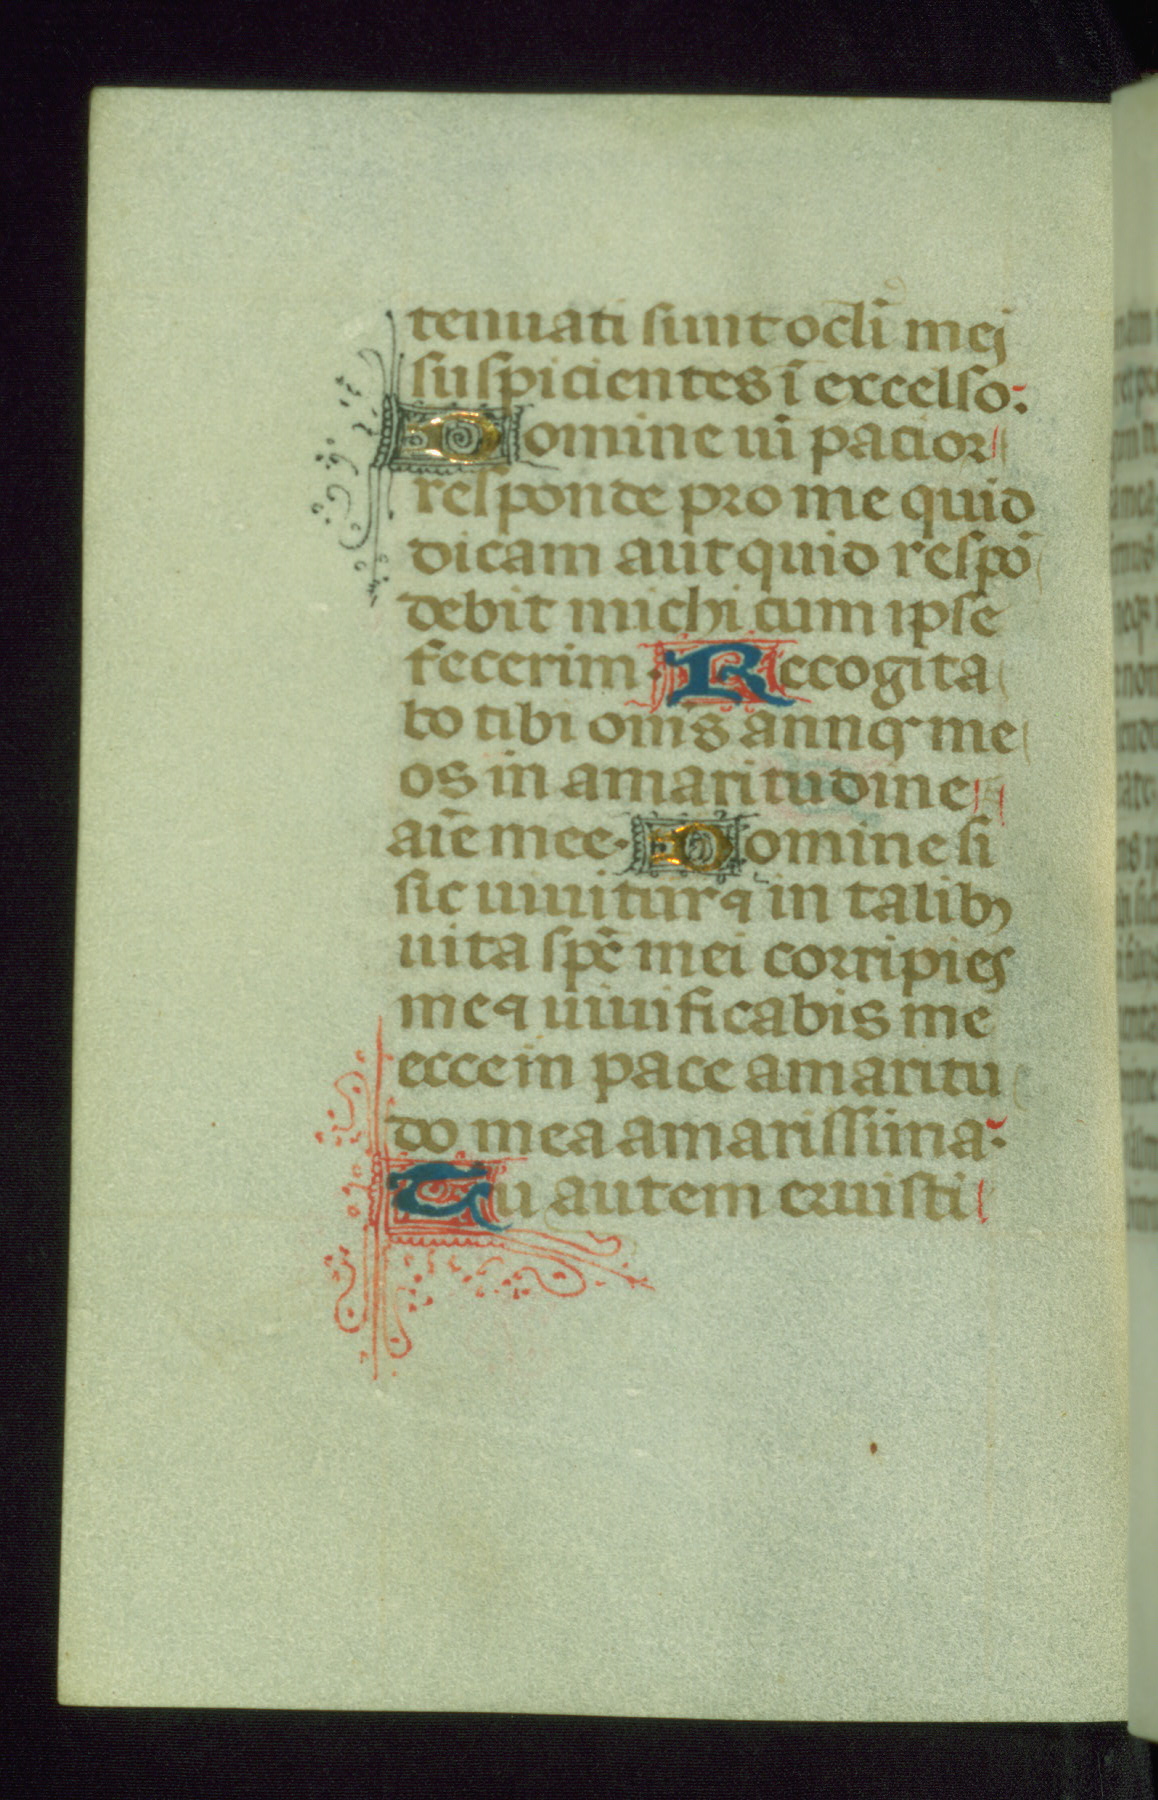 tenuati sunt ocłi mei
suspicientes ī excelso:
Domine uī pacior
responde pro me quid
dicam aut quid respō
debit michi cum ipse
fecerim. Recogita
bo tibi om̄s annoꝰ me
os in amaritudine
aīe mee. Domine si
sic uiuitur ⁊ in talibꝫ
uita sp̄c mei corripies
me ⁊ uiuificabis me
ecce in pace amaritu
do mea amarissima.
Tu autem eruisti